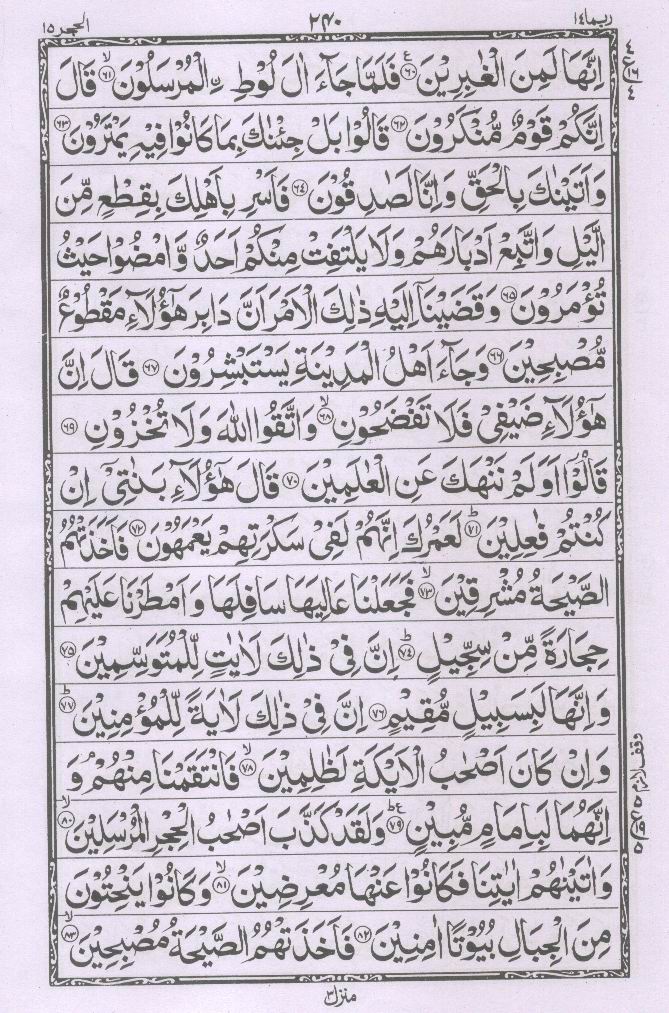 ربما ١٤
٢٤٠
الحجر ١٥
اِنَّهَا لَمِنَ الْغٰبِرِيْنَ ۝٦٠ فَلَمَّا جَآءَ اٰلَ لُوْطِ ۨالْمُرْسَلُوْنَ ۝٦١ۙ قَالَ
اِنَّكُمْ قَوْمٌ مُّنْكَرُوْنَ ۝٦٢ قَالُوْا بَلْ جِئْنٰكَ بِمَا كَانُوْا فِيْهِ يَمْتَرُوْنَ ۝٦٣
وَاَتَيْنٰكَ بِالْحَقِّ وَاِنَّا لَصٰدِقُوْنَ ۝٦٤ فَاَسْرِ بِاَهْلِكَ بِقِطْعٍ مِّنَ
الَّيْلِ وَاتَّبِعْ اَدْبَارَهُمْ وَلَا يَلْتَفِتْ مِنْكُمْ اَحَدٌ وَّامْضُوْا حَيْثُ
تُؤْمَرُوْنَ ۝٦٥ وَقَضَيْنَآ اِلَيْهِ ذٰلِكَ الْاَمْرَ اَنَّ دَابِرَ هٰٓؤُلَآءِ مَقْطُوْعٌ
مُّصْبِحِيْنَ ۝٦٦ وَجَآءَ اَهْلُ الْمَدِيْنَةِ يَسْتَبْشِرُوْنَ ۝٦٧ قَالَ اِنَّ
هٰٓؤُلَآءِ ضَيْفِيْ فَلَا تَفْضَحُوْنِ ۝٦٨ۙ وَاتَّقُوا اللّٰهَ وَلَا تُخْزُوْنِ ۝٦٩
قَالُوْٓا اَوَلَمْ نَنْهَكَ عَنِ الْعٰلَمِيْنَ ۝٧٠ قَالَ هٰٓؤُلَآءِ بَنٰتِيْٓ اِنْ
كُنْتُمْ فٰعِلِيْنَ ۝٧١ؕ لَعَمْرُكَ اِنَّهُمْ لَفِيْ سَكْرَتِهِمْ يَعْمَهُوْنَ ۝٧٢ فَاَخَذَتْهُمُ
الصَّيْحَةُ مُشْرِقِيْنَ ۝٧٣ۙ فَجَعَلْنَا عَالِيَهَا سَافِلَهَا وَاَمْطَرْنَا عَلَيْهِمْ
حِجَارَةً مِّنْ سِجِّيْلٍ ۝٧٤ؕ اِنَّ فِيْ ذٰلِكَ لَاٰيٰتٍ لِّلْمُتَوَسِّمِيْنَ ۝٧٥
وَاِنَّهَا لَبِسَبِيْلٍ مُّقِيْمٍ ۝٧٦ اِنَّ فِيْ ذٰلِكَ لَاٰيَةً لِّلْمُؤْمِنِيْنَ ۝٧٧ؕ
وَاِنْ كَانَ اَصْحٰبُ الْاَيْكَةِ لَظٰلِمِيْنَ ۝٧٨ۙ فَانْتَقَمْنَا مِنْهُمْ ۘ وَ
اِنَّهُمَا لَبِاِمَامٍ مُّبِيْنٍ ۝٧٩ؕ وَلَقَدْ كَذَّبَ اَصْحٰبُ الْحِجْرِ الْمُرْسَلِيْنَ ۝٨٠ۙ
وَاٰتَيْنٰهُمْ اٰيٰتِنَا فَكَانُوْا عَنْهَا مُعْرِضِيْنَ ۝٨١ۙ وَكَانُوْا يَنْحِتُوْنَ
مِنَ الْجِبَالِ بُيُوْتًا اٰمِنِيْنَ ۝٨٢ فَاَخَذَتْهُمُ الصَّيْحَةُ مُصْبِحِيْنَ ۝٨٣ۙ
منزل ٣